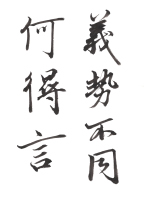 義勢不同
何得言